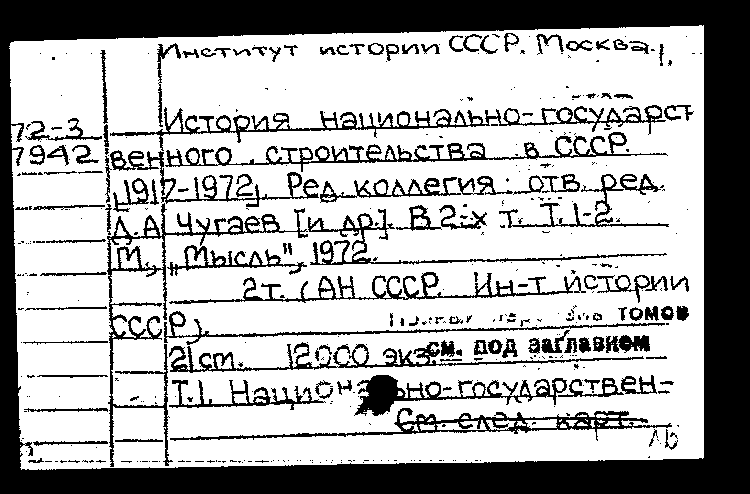 Институт истории СССР. Москва.
72-3 История национально-государст
7942 венного строительства в СССР.
1917-1972. Ред. коллегия: отв. ред.
Д.А. Чугаев [и др.]. В 2-х т. Т. 1-2.
М., „Мысль", 1972.
2т. (АН СССР. Ин-т истории
СССР).
томов
21 см. 12000 экз. см. под заглавием
Т.1. Национально-государствен-
См. след. карт.